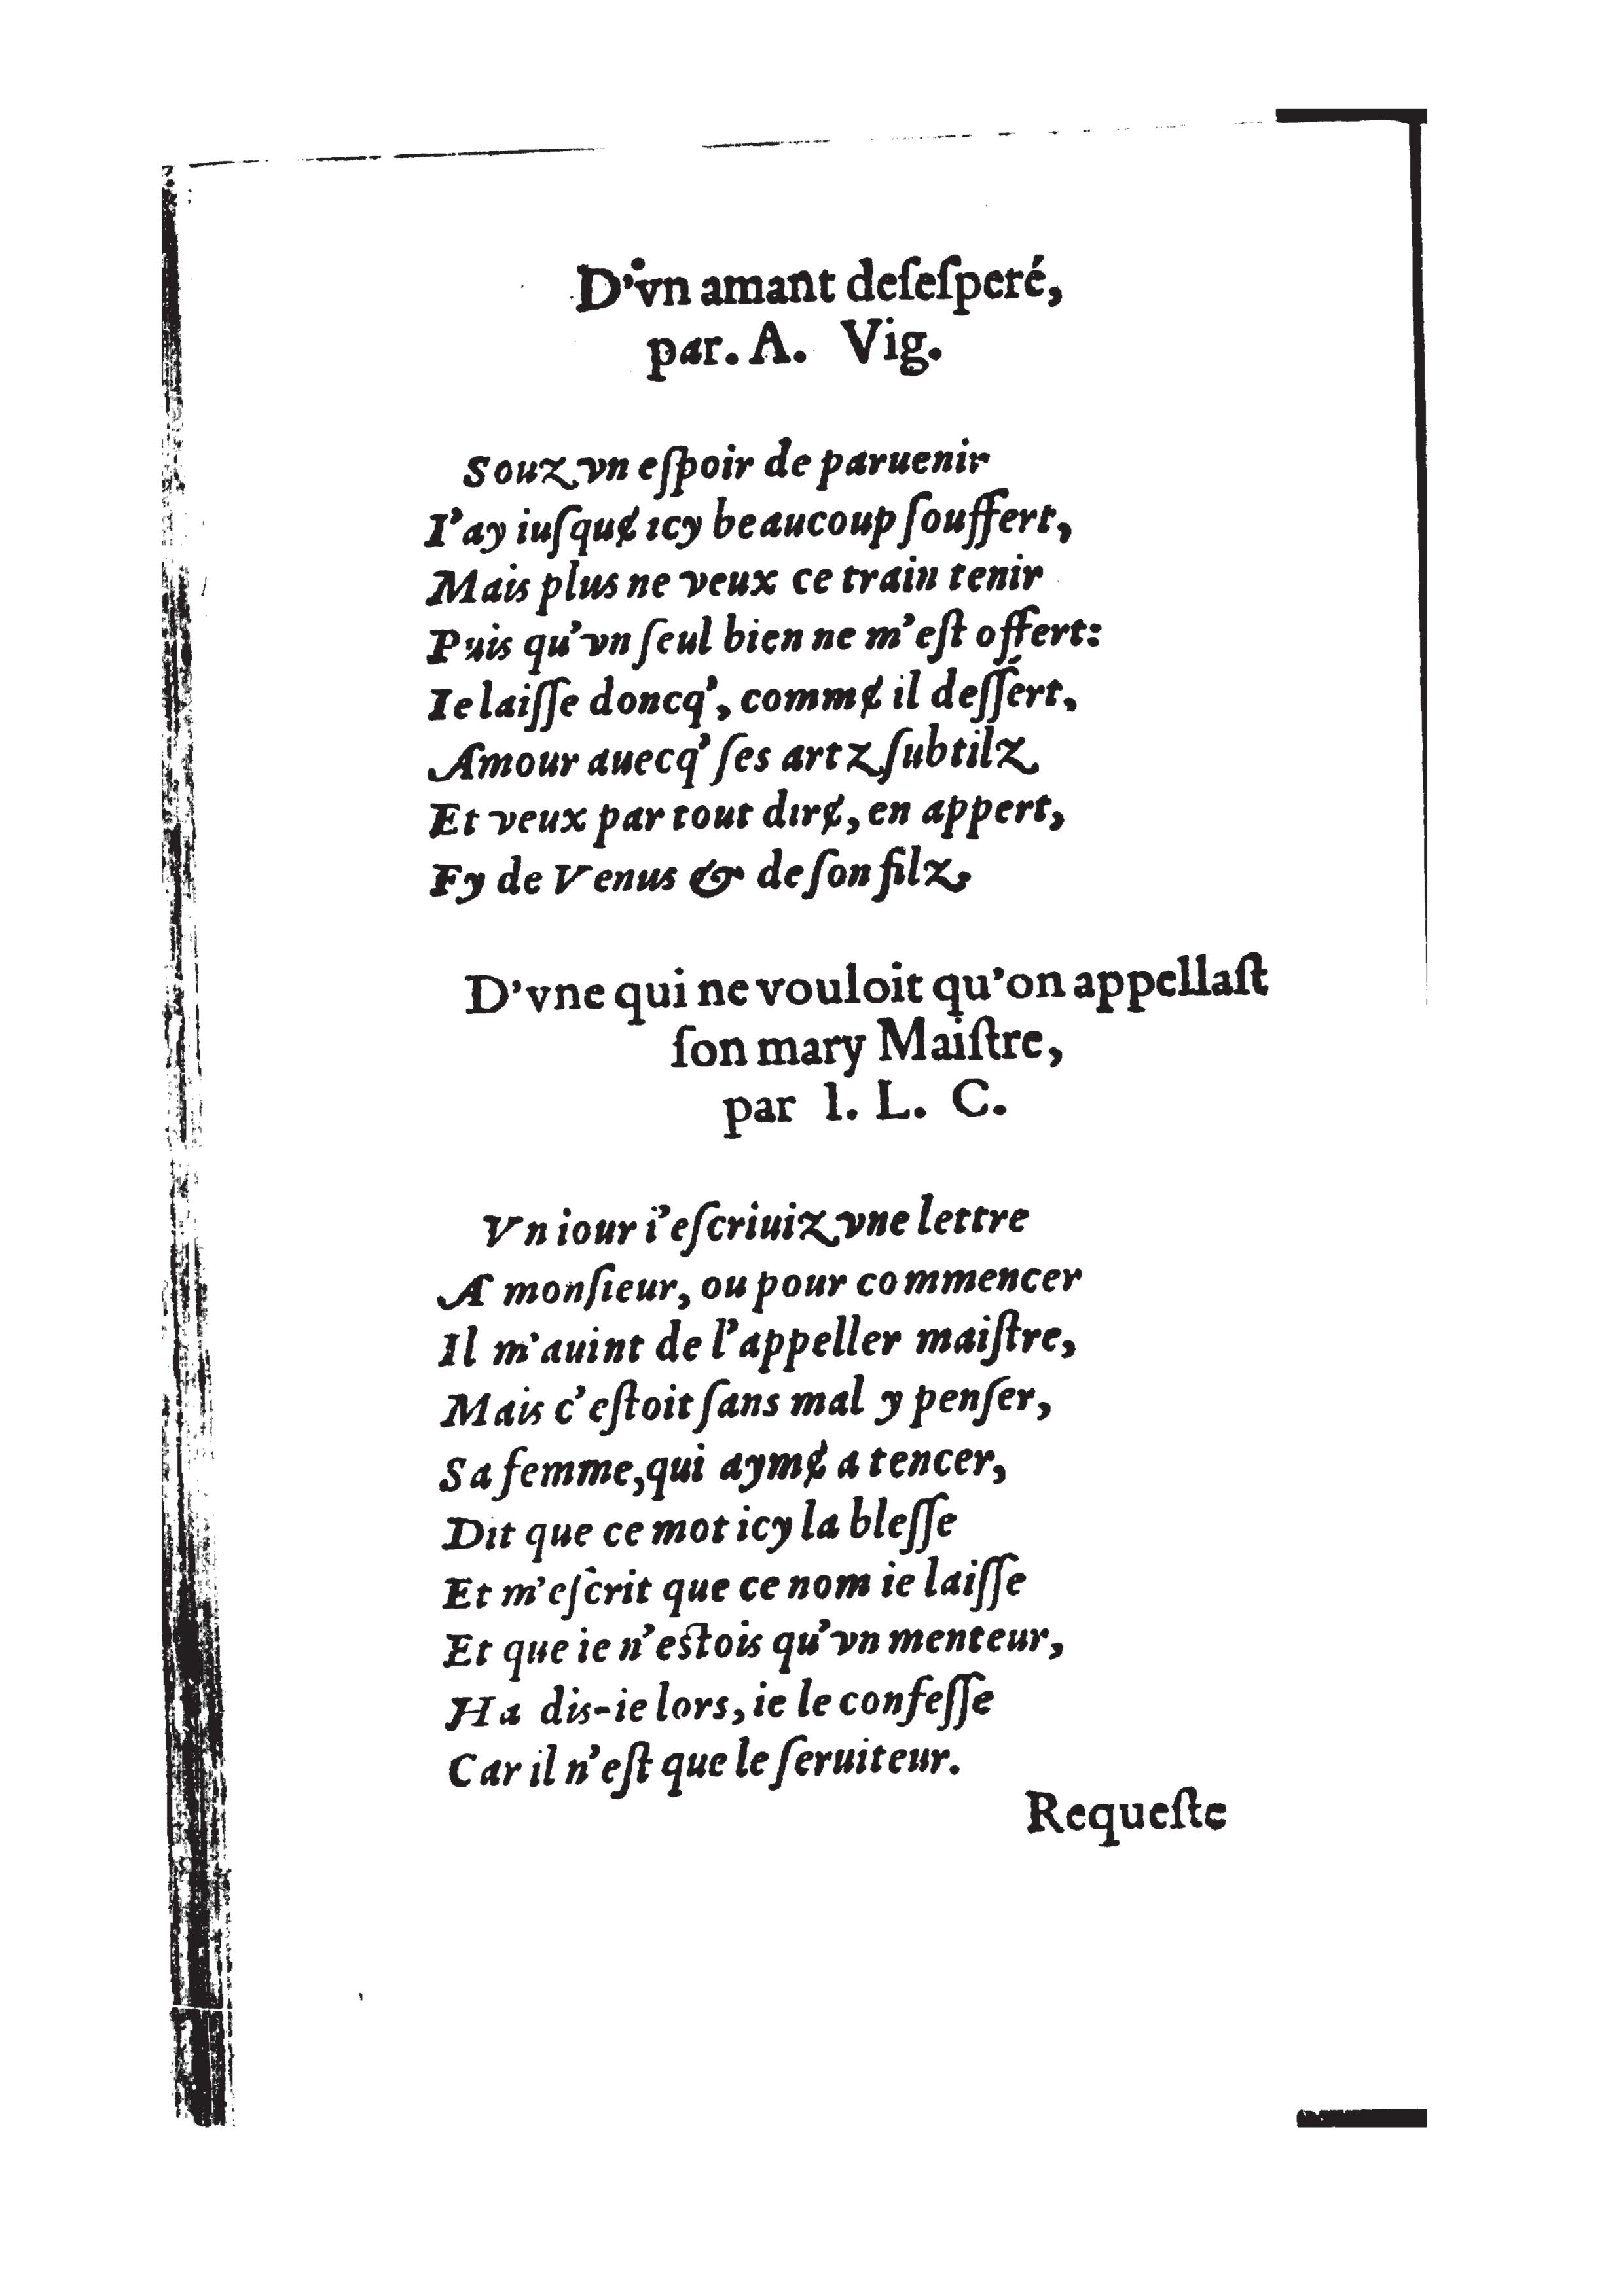 D'vn amant deſeſperé,
par. A. Vig.
Souz vn eſpoir de paruenir
I'ay iuſqu&#x247; icy beaucoup ſouffert,
Mais plus ne veux ce train tenir
Puis qu'vn ſeul bien ne m'eſt offert:
Ie laiſſe doncq', commɇ il deſſért,
Amour auecq' ſes artz ſubtilz
Et veux par tout dirɇ, en appert,
Fy de Venus & de ſon filz.
D'vne qui ne vouloit qu'on appellaſt
ſon mary Maiſtre,
par I. L. C.
Vn iour i'eſcriuiz vne lettre
A monſieur, ou pour commencer
Il m'auint de l'appeller maiſtre,
Mais c'eſtoit ſans mal y penſer,
Sa femme, qui aymɇ a tencer,
Dit que ce mot icy la bleſſe
Et m'eſcrit que ce nom ie laiſſe
Et que ie n'estois qu'vn menteur,
Ha dis-ie lors, ie le confeſſe
Car il n'eſt que le ſeruiteur.
Requeſte